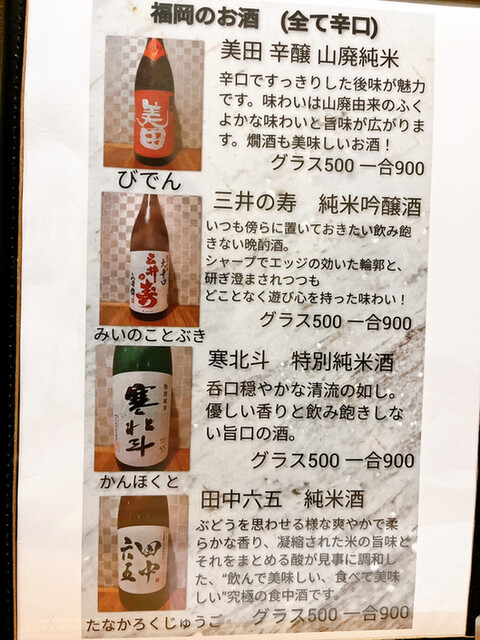 福岡のお酒 (全て辛口)
美田 辛醸 山廃純米
辛口ですっきりした後味が魅力
です。味わいは山廃由来のふく
よかな味わいと旨味が広がりま
す。燗酒も美味しいお酒！
グラス500 一合900
美田
びでん
三井の寿 純米吟醸酒
いつも傍らに置いておきたい飲み飽
きない晩酌酒。
シャープでエッジの効いた輪郭と、
研ぎ澄まされつつも
どことなく遊び心を持った味わい！
グラス500 一合900
大辛口
三井の寿
みいのことぶき
寒北斗 特別純米酒
呑口穏やかな清流の如し。
優しい香りと飲み飽きしな
い旨口の酒。
グラス500 一合900
寒北斗
かんほくと
田中六五 純米酒
ぶどうを思わせる様な爽やかで柔
らかな香り、凝縮された米の旨味と
それをまとめる酸が見事に調和し
た、“飲んで美味しい、食べて美味
しい”究極の食中酒です。
グラス500 一合900
田中
六五
たなかろくじゅうご